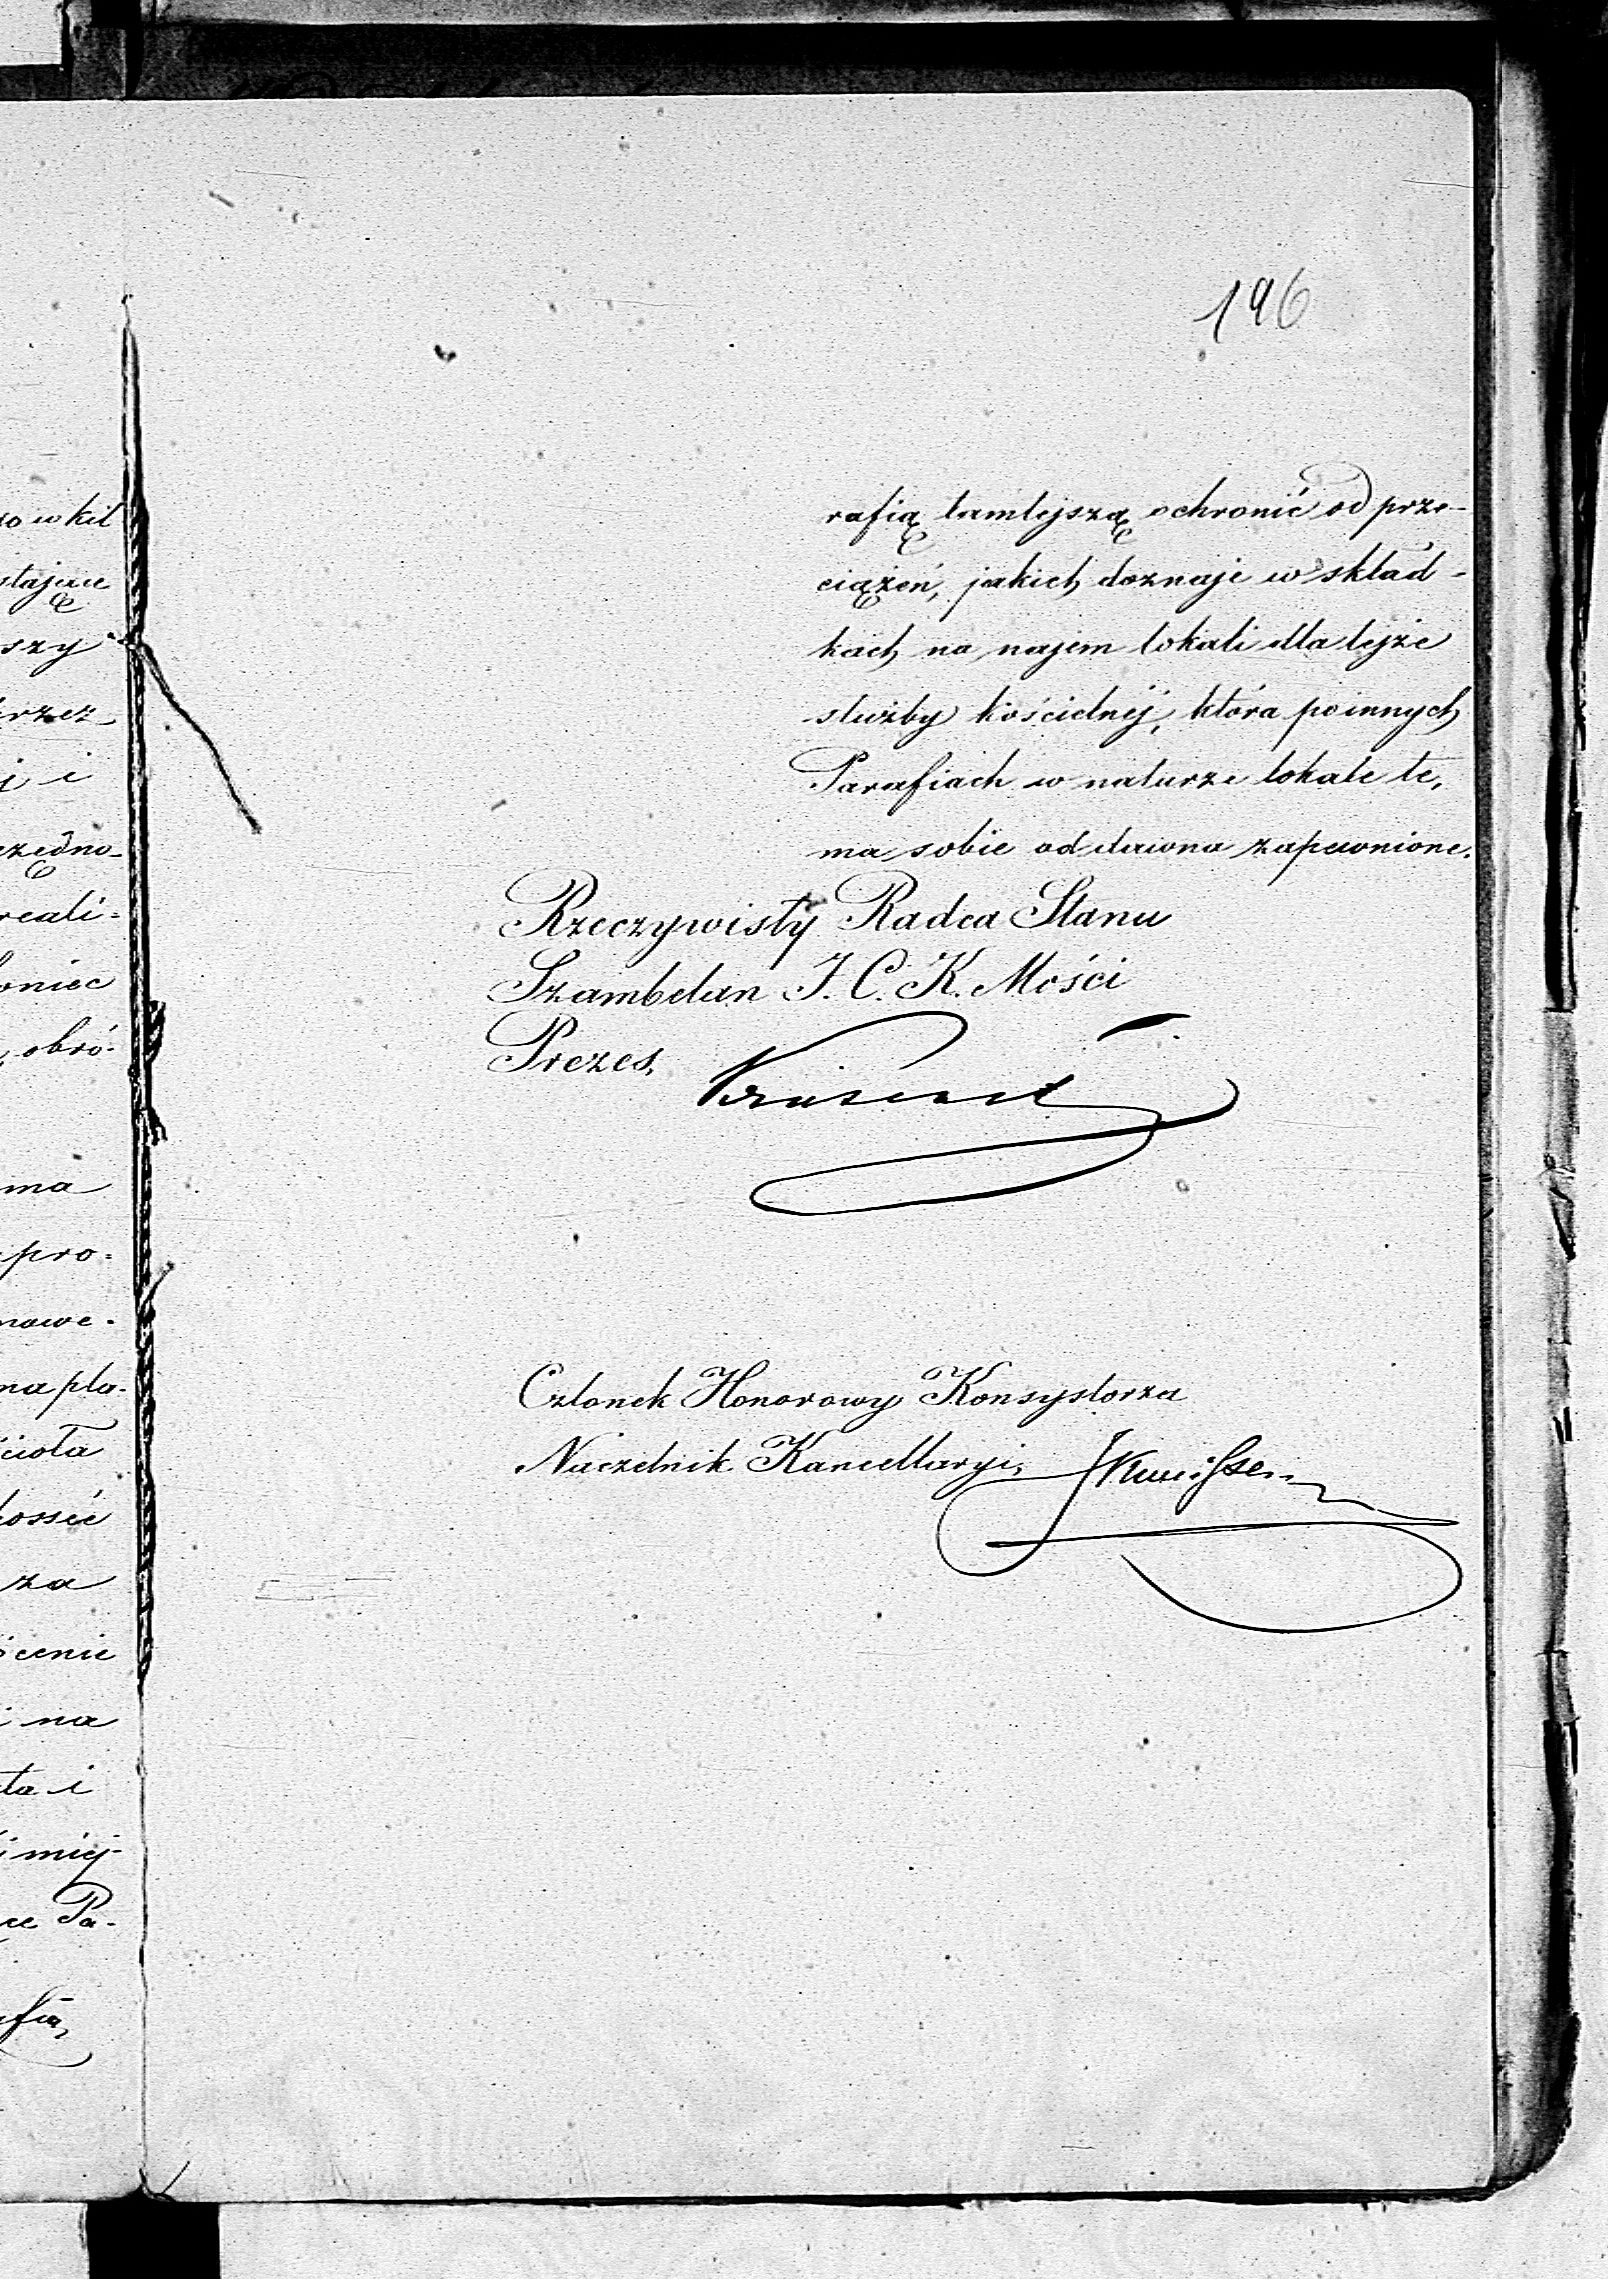 196
rafią tamtejszą ochronić od prze-
ciążeń, jakich doznaje w skład-
kach na najem lokali dla tejże
służby kościelnéj, która po innych
Parafiach w naturze lokale te,
ma sobie od dawna zapewnione.
Rzeczywisty Radca Stanu
Szambelan J. C. K. Mości
Prezes,
Członek Honorowy Konsystorza
Naczelnik Kancellaryi,
szy
i
reali-
obró-
ma
pro-
na pla-
za
na
i
Pa-